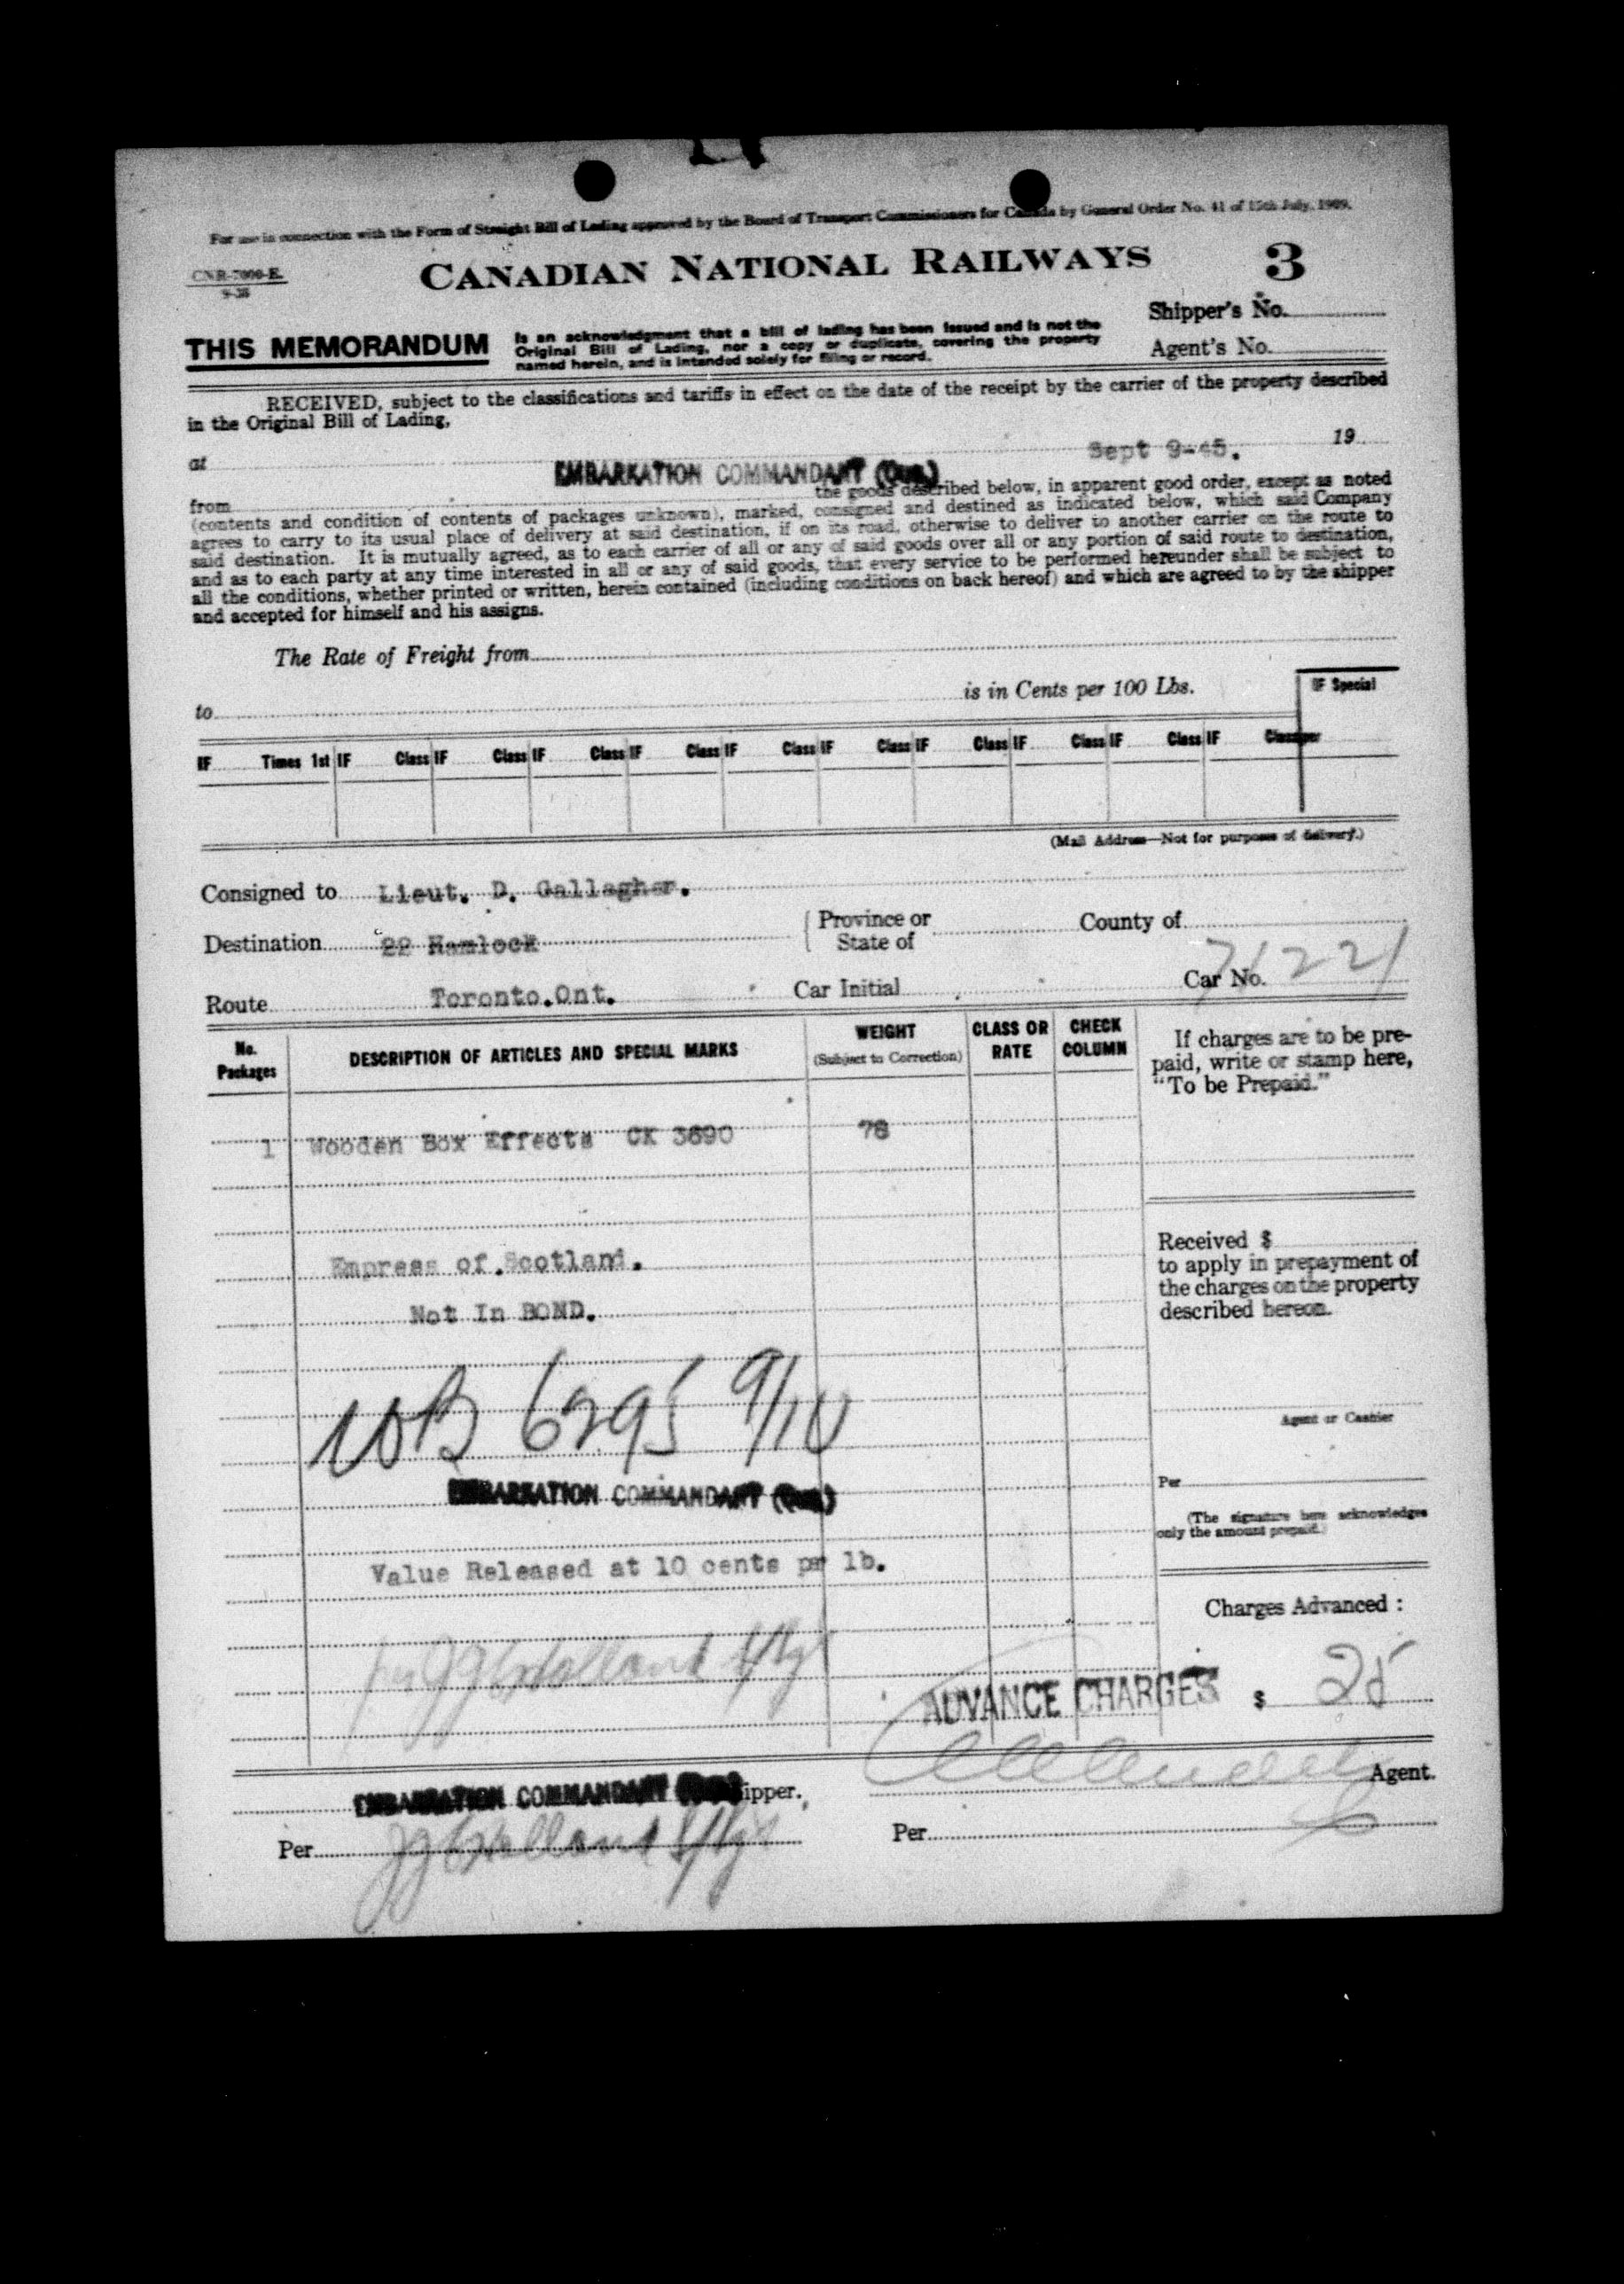 For use in connection with the Form of Straight Bill of Lading approved by the Board of Transport Commissioners for Canada by General Order No. 41 of 15th July, 1909.
CNR-7000-E
9-38
CANADIAN NATIONAL RAILWAYS
3
Shipper's No.
Agent's No.
THIS MEMORANDUM
is an acknowledgment that a bill of lading has been issued and is not the
Original Bill of Lading, nor a copy or duplicate, covering the property
named herein, and is intended solely for filing or record.
RECEIVED, subject to the classifications and tariffs in effect on the date of the receipt by the carrier of the property described
in the Original Bill of Lading,
at Sept 9-45. 19
EMBARKATION COMMANDANT (Que.)
from the goods described below, in apparent good order, except as noted
(contents and condition of contents of packages unknown), marked, consigned and destined as indicated below, which said Company
agrees to carry to its usual place of delivery at said destination, if on its road, otherwise to deliver to another carrier on the route to
said destination. It is mutually agreed, as to each carrier of all or any of said goods over all or any portion of said route to destination,
and as to each party at any time interested in all or any of said goods, that every service to be performed hereunder shall be subject to
all the conditions, whether printed or written, herein contained (including conditions on back hereof) and which are agreed to by the shipper
and accepted for himself and his assigns.
The Rate of Freight from
to is in Cents per 100 Lbs.
IF Special
IF Times 1st IF Class IF Class IF Class IF Class IF Class IF Class IF Class IF Class IF Class IF Class per
(Mail Address—Not for purposes of delivery.)
Consigned to Lieut. D. Gallagher.
Destination 22 Hamlock Province or State of County of
Route Toronto.Ont. Car Initial Car No. 71221
No. Packages
DESCRIPTION OF ARTICLES AND SPECIAL MARKS
WEIGHT (Subject to Correction)
CLASS OR RATE
CHECK COLUMN
If charges are to be pre-
paid, write or stamp here,
"To be Prepaid."
1 Wooden Box Effects CK 3690 78
Received $
to apply in prepayment of
the charges on the property
described hereon.
Empress of Scotland.
Not In BOND.
6295 9/10
Agent or Cashier
EMBARKATION COMMANDANT (Que.)
Per
(The signature here acknowledges
only the amount prepaid.)
Value Released at 10 cents pr lb.
Charges Advanced:
ADVANCE CHARGES $ 25
EMBARKATION COMMANDANT Shipper.
Agent.
Per
Per